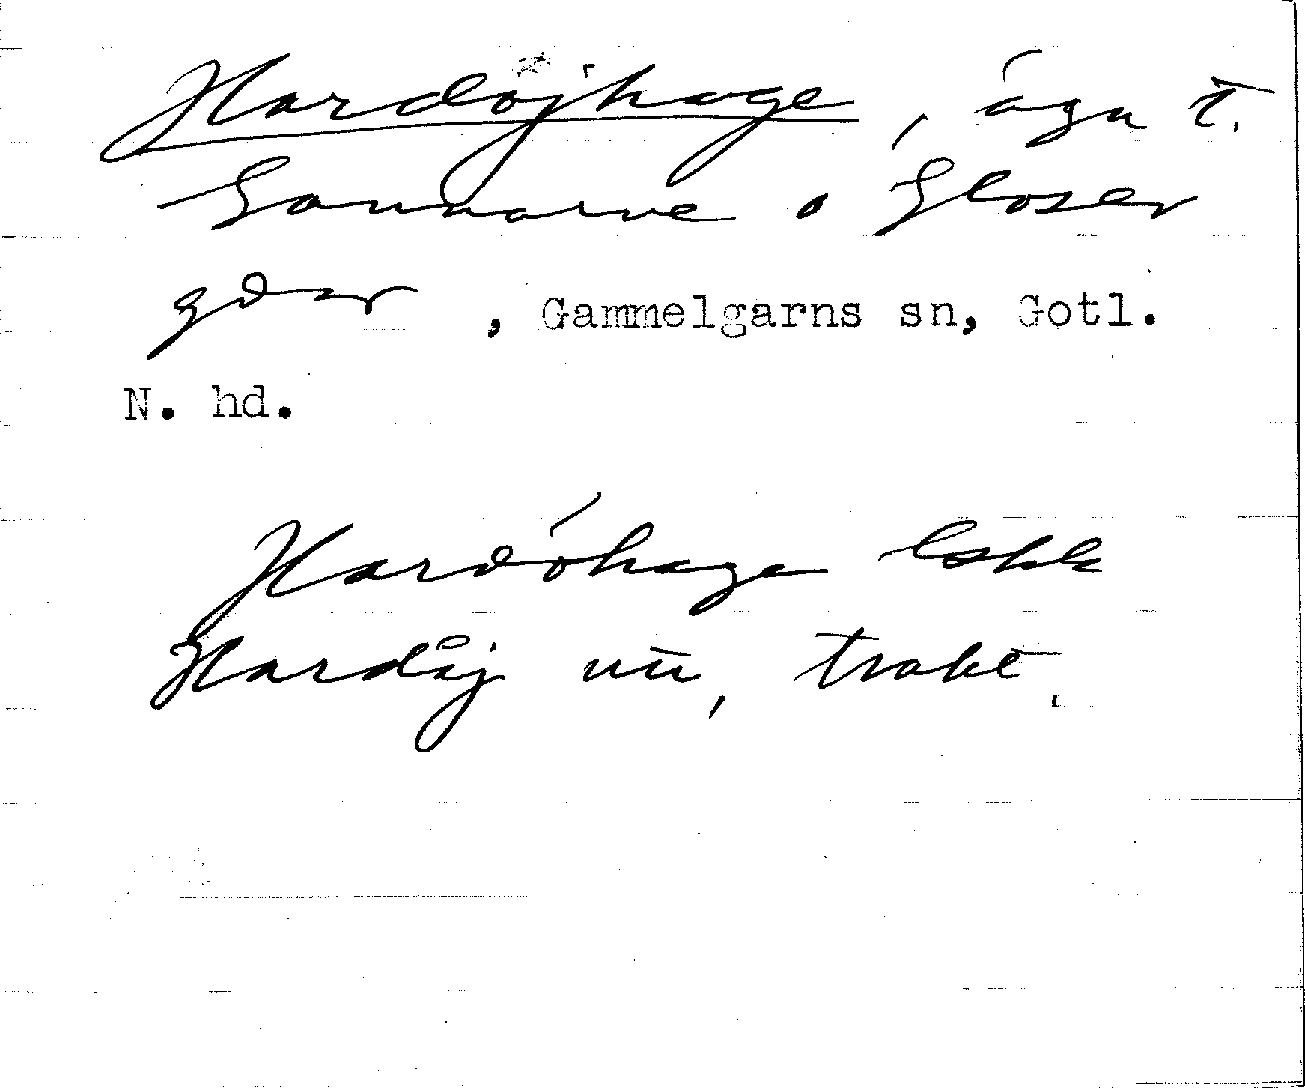 Hardöjhage, äga t.
Sannarve o Gloser
gdar, Gammelgarns sn, Gotl.
N. hd.
Hardóhage
Hardåj nu, trakt.